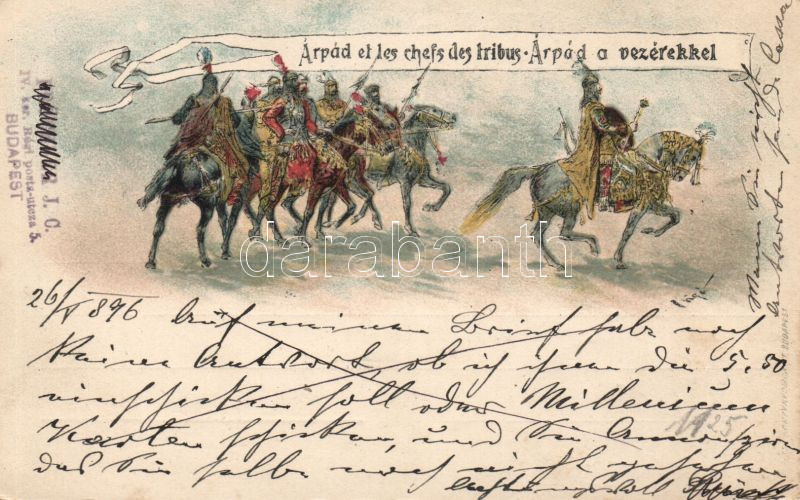 Árpád et les chefs des tribus · Árpád a vezérekkel
J. C.
IV. ker. Régi posta-utcza 5.
BUDAPEST
darabanth
26/V 896 Auf meinen Brief habe noch
keine Antwort, ob ich Ihnen die 5.50
einschicken soll oder Millenium
Karten schicken, und Sie
das Sie selbe noch nicht gesehen
achtungsvoll
Wann Sie nicht
antworten
1125